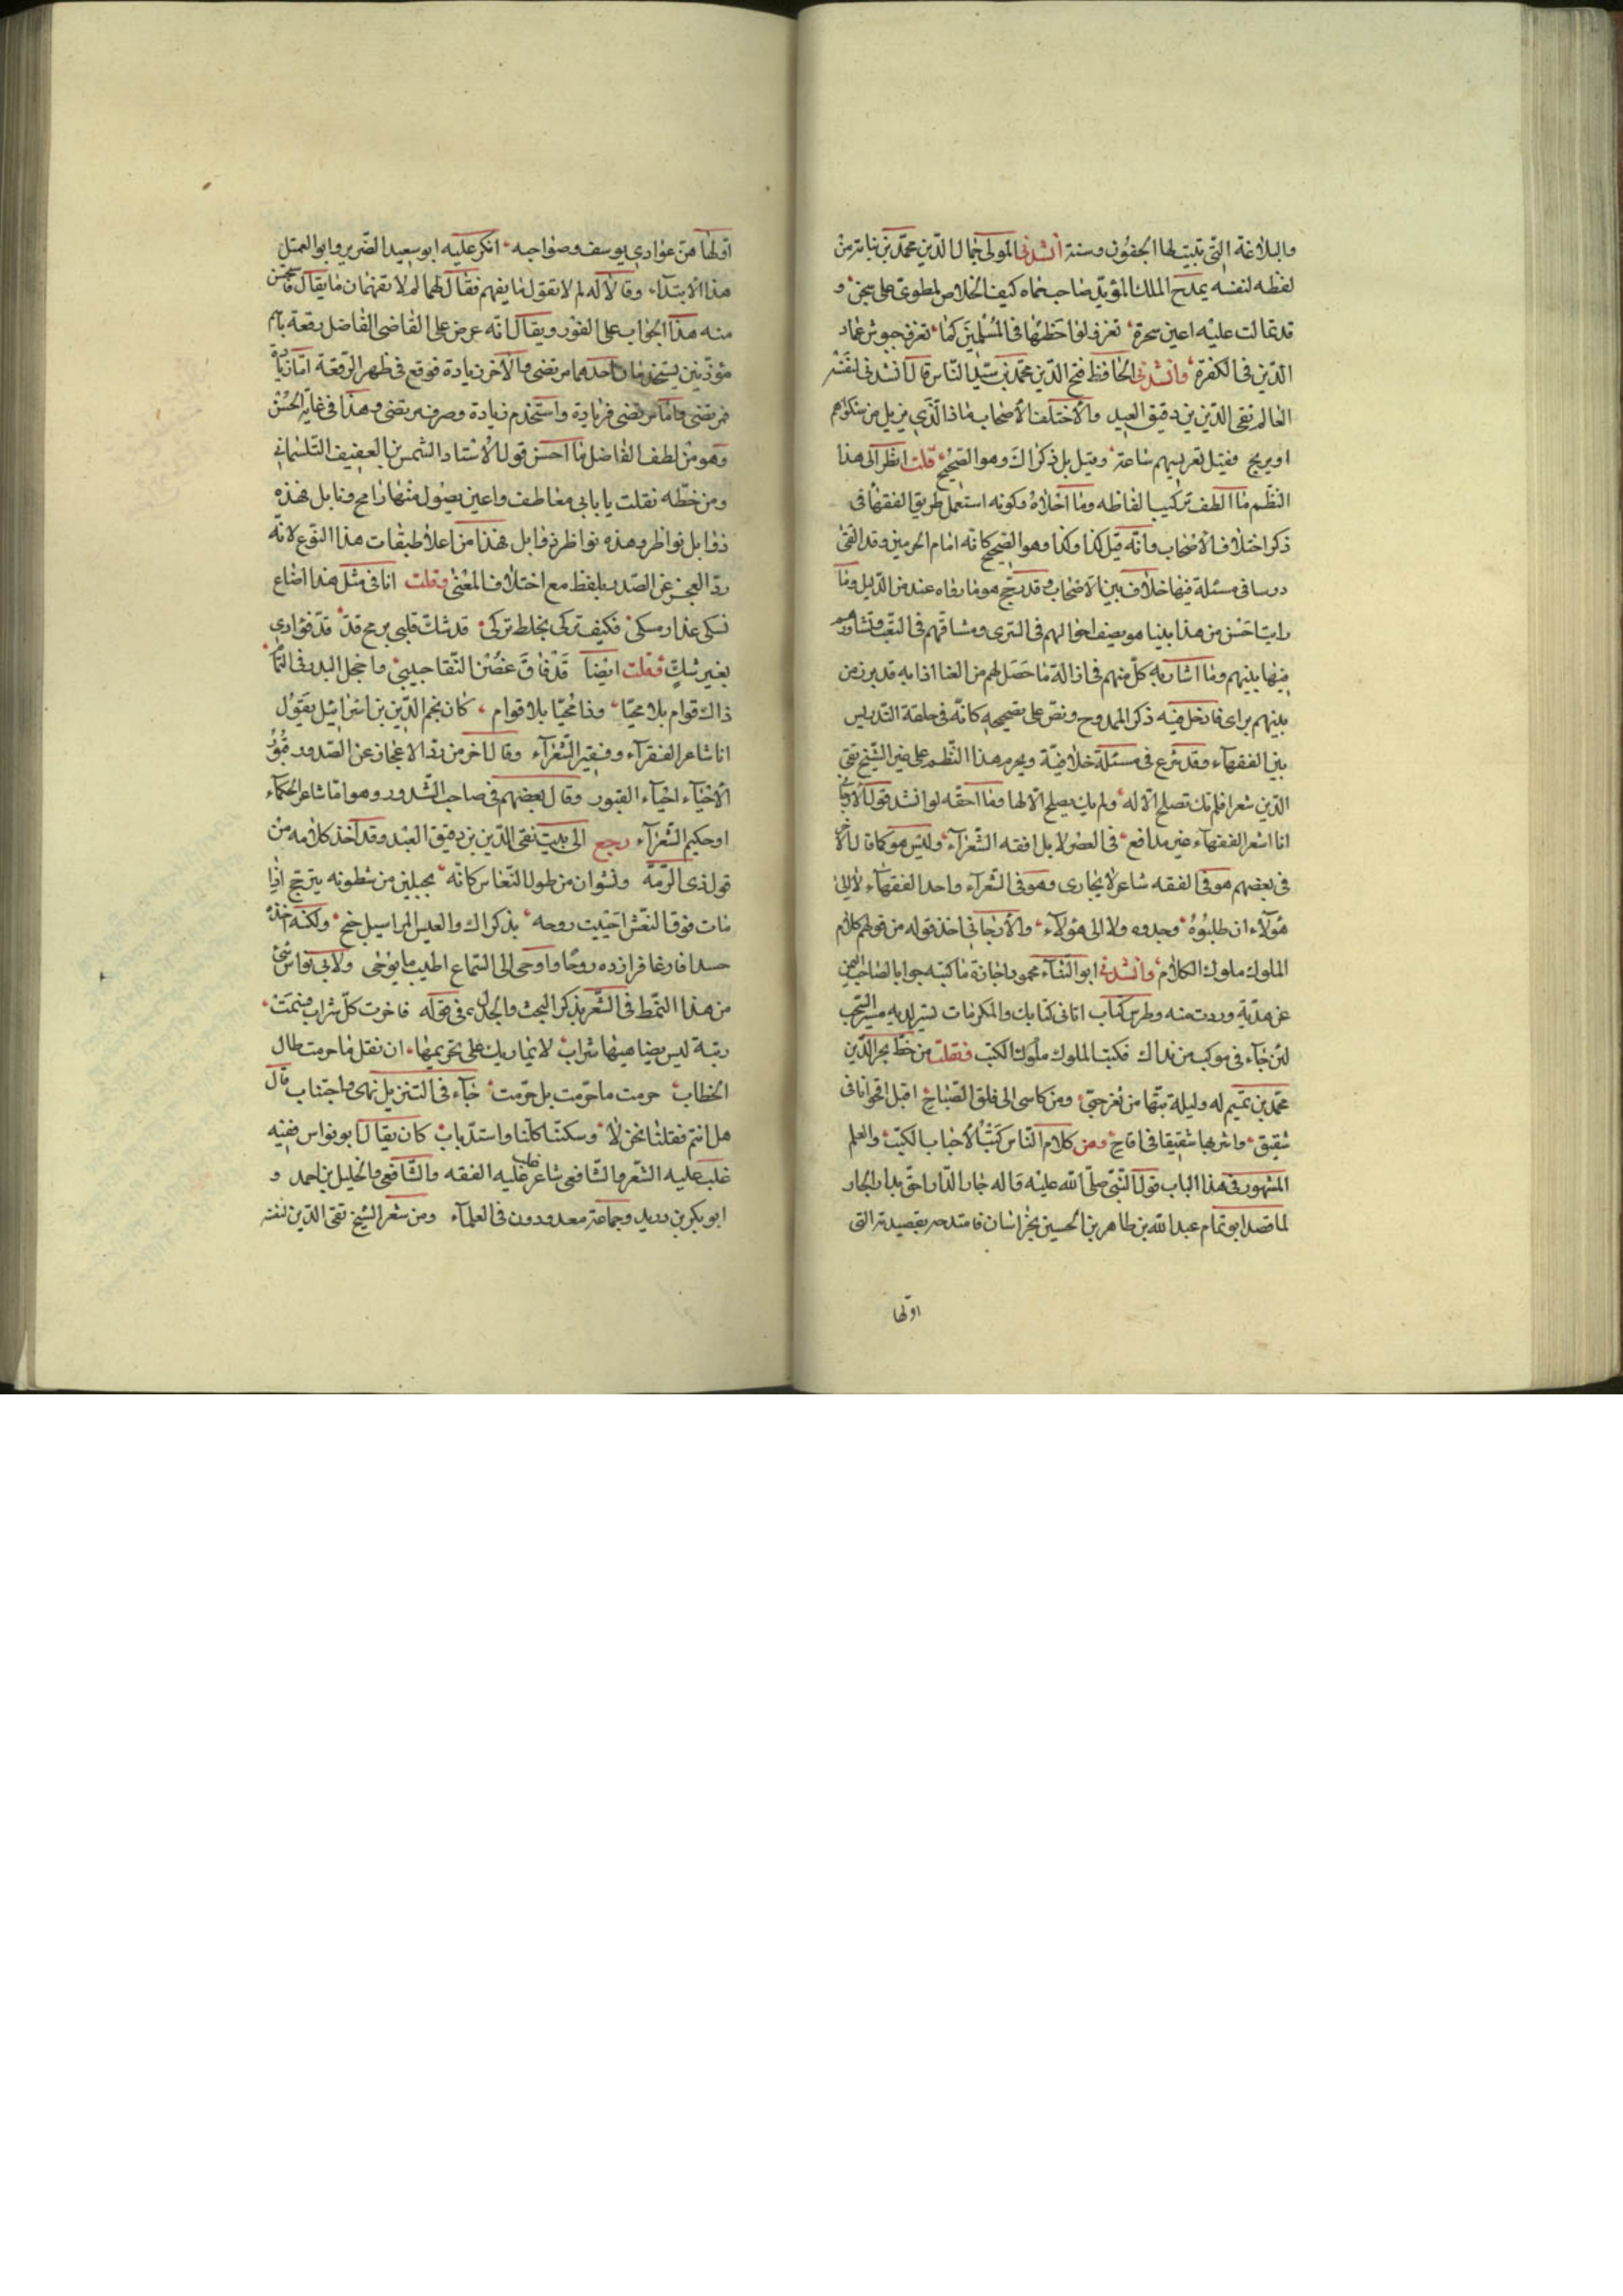 والبلاغة التى تبيت لها الجفون وسنة أنشدنى المولى جمال الدين محمد بن نباتة من
لفظه لنفسه يمدح الملك المؤيد صاحب حماه كيف الخلاص لمطوى على شجن و
قد تمالت عليه اعين سحرة تغزو لواحظها فى المسلمين كما تغزو جيوش عماد
الدين فى الكفرة وانشدنى الحافظ فتح الدين محمد بن سيد الناس قال انشدنى لنفسه
العالم تقى الدين بن دقيق العيد والاختلف الأصحاب ماذا الذى يزيل من شكواهم
او يريح فقيل تعريسهم ساعة وقيل بل ذكراك وهو الصحيح قلت انظر الى هذا
النظم ما الطف تركيب الفاظه وما احلاه وكونه استعمل طريق الفقهاء فى
ذكر اختلاف الاصحاب وانه قيل كذا وكذا وهو الصحيح كانه امام الحرمين وقد القى
درسا فى مسئلة فيها خلاف بين الاصحاب وقد رجح هو ما رواه عنده من الدليل وما
رايت احسن من هذا بينا هو يصف احوالهم فى السرى ومشاقهم فى التعب وتشاورهم
فيها بينهم وما اشار به كل منهم فى ازالة ما حصل لهم من العنا اذا به قد برز من
بينهم براى فادخل فيه ذكر الممدوح ونص على تصحيحه كانه فى حلقة التدريس
بين الفقهاء وقد شرع فى مسئلة خلافية ويحرم هذا النظم على غير الشيخ تقى
الدين شعرا فلم تك تصلح الا له ولم يك يصلح الا لها وما احقه لو انشد قول الارجانى
انا اشعر الفقهاء غير مدافع فى العصر لا بل افقه الشعراء وليس هو كما قال الآخر
فى بعضهم هو فى الفقه شاعر لا يجارى وهو فى الشعرآء واحد الفقهاء لا الى
هؤلاء ان طلبوه وجدوه ولا الى هؤلاء والارجانى اخذ قوله من قولهم كلام
الملوك ملوك الكلام وانشدنى ابو الثناء محمود اجازة ما كتبه جوابا لصاحب اليمن
عن هدية وردت منه وطرس كتاب اتانى كتابك والمكرمات تسير لديه مسير السحب
لئن جاء فى موكب من نداك فكتب الملوك ملوك الكتب فنقلت من خط مجير الدين
محمد بن تميم له وليلة بتها من ثغر حبى ومن كاسى الى فلق الصباح اقبل اقحوانا فى
شقيق واشربها شقيقا فى اقاح ومن كلام الناس كتب الاحباب الكتب والعلم
المشهور فى هذا الباب قول النبى صلى الله عليه قاله جار الدار احق بدار الجار
لما قصد ابو تمام عبد الله بن طاهر بن الحسين بخراسان فامتدحه بقصيدته التى
اولها
اولها هن عوادى يوسف وصواحبه انكر عليه ابو سعيد الضرير وابو العميثل
هذا الابتداء وقالا له لم لا تقول ما يفهم فقال لهما لم لا تفهمان ما يقال فاستحسن
منه هذا الجواب على الفور ويقال انه عرض على القاضى الفاضل رقعة باسم
مؤذنين يستخدمان احدهما مرتضى والآخر زيادة فوقع فى ظهر الرقعة اما زيادة
فمرتضى واما مرتضى فزيادة واستخدم زيادة وصرف مرتضى وهذا فى غاية الحسن
وهو من لطف الفاضل ما احسن قول الاستاد الشمس بن العفيف التلمسانى
ومن خطه نقلت يا بابى معاطف واعين يصول منها رامح ونابل فهذه
ذوابل نواظر وهذه نواظر ذوابل فهذا من اعلا طبقات هذا النوع لانه
رد العجز عن الصدر بلفظ مع اختلاف المعنى وقلت انا فى مثل هذا اضاع
نسكى عذار مسكى فكيف تركى بخلط تركى قد شك قلبى برمح قد قد فؤادى
بغير شك وقلت ايضا قد فاق غصن النقا حبيبى واخجل البدر فى التمام
ذاك قوام بلا محيا وذا محيا بلا قوام كان نجم الدين بن اسرائيل يقول
انا شاعر الفقرآء وفقير الشعرآء وقال آخر من رد الاعجاز عن الصدور قبور
الاخيآء احيآء القبور وقال بعضهم فى صاحب الشذور وهو اما شاعر الحكماء
او حكيم الشعرآء رجع الى بيت تقى الدين بن دقيق العيد وقد اخذ كلامه من
قول ذى الرمة ونشوان من طول النعاس كانه بحبلين من شطونه يترجح اذا
مات فوق النعش احييت روحه بذكراك والعيس المراسيل جنح ولكنه اخذه
حسدا فارغا فزاده روحا واوحى الى السماع اطيب ما يوحى ولابى نواس شئ
من هذا النمط فى الشعر بذكر البحث والجدل وهى قوله فاخرت كل شراب فنمت
رتبة ليس يضاهيها شراب لا يماريك على تحريمها ان نقل ما حرمت طال
الخطاب حرمت ما حرمت بل حرمت جآء فى التنزيل نهى واجتناب قال
هل انتم فقلنا نحن لا وسكتنا كلنا واستد باب كان يقال ابو نواس فقيه
غلب عليه الشعر والشافعى شاعر غلب عليه الفقه والشافعى والخليل بن احمد و
ابو بكر بن دريد وجماعة معدودون فى العلمآء ومن شعر الشيخ تقى الدين لنفسه